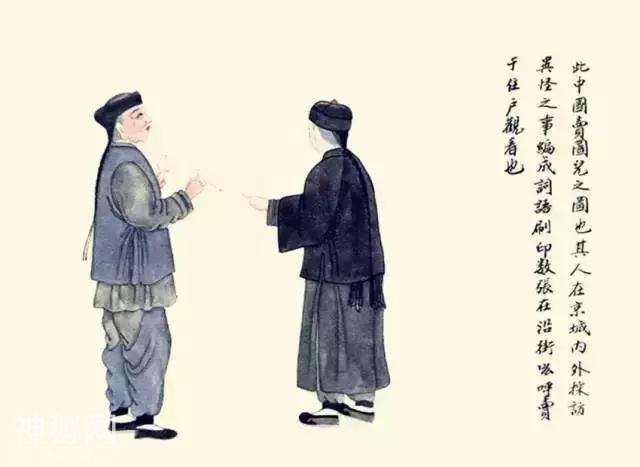 此中國賣圖兒之圖也其人在京城内外採訪
異怪之事編成詞語刷印数張在沿街吆呼賣
于住户觀看也
神秘网